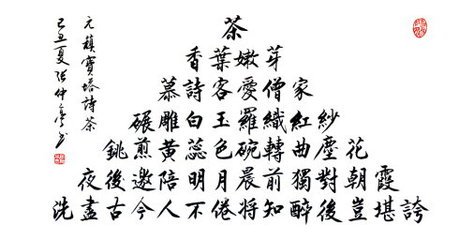 茶
香葉嫩芽
慕詩客愛僧家
碾雕白玉羅織紅紗
銚煎黃蕊色碗轉曲塵花
夜後邀陪明月晨前獨對朝霞
洗盡古今人不倦將知醉後豈堪誇
元稹寶塔詩茶
己丑夏張仲亭书